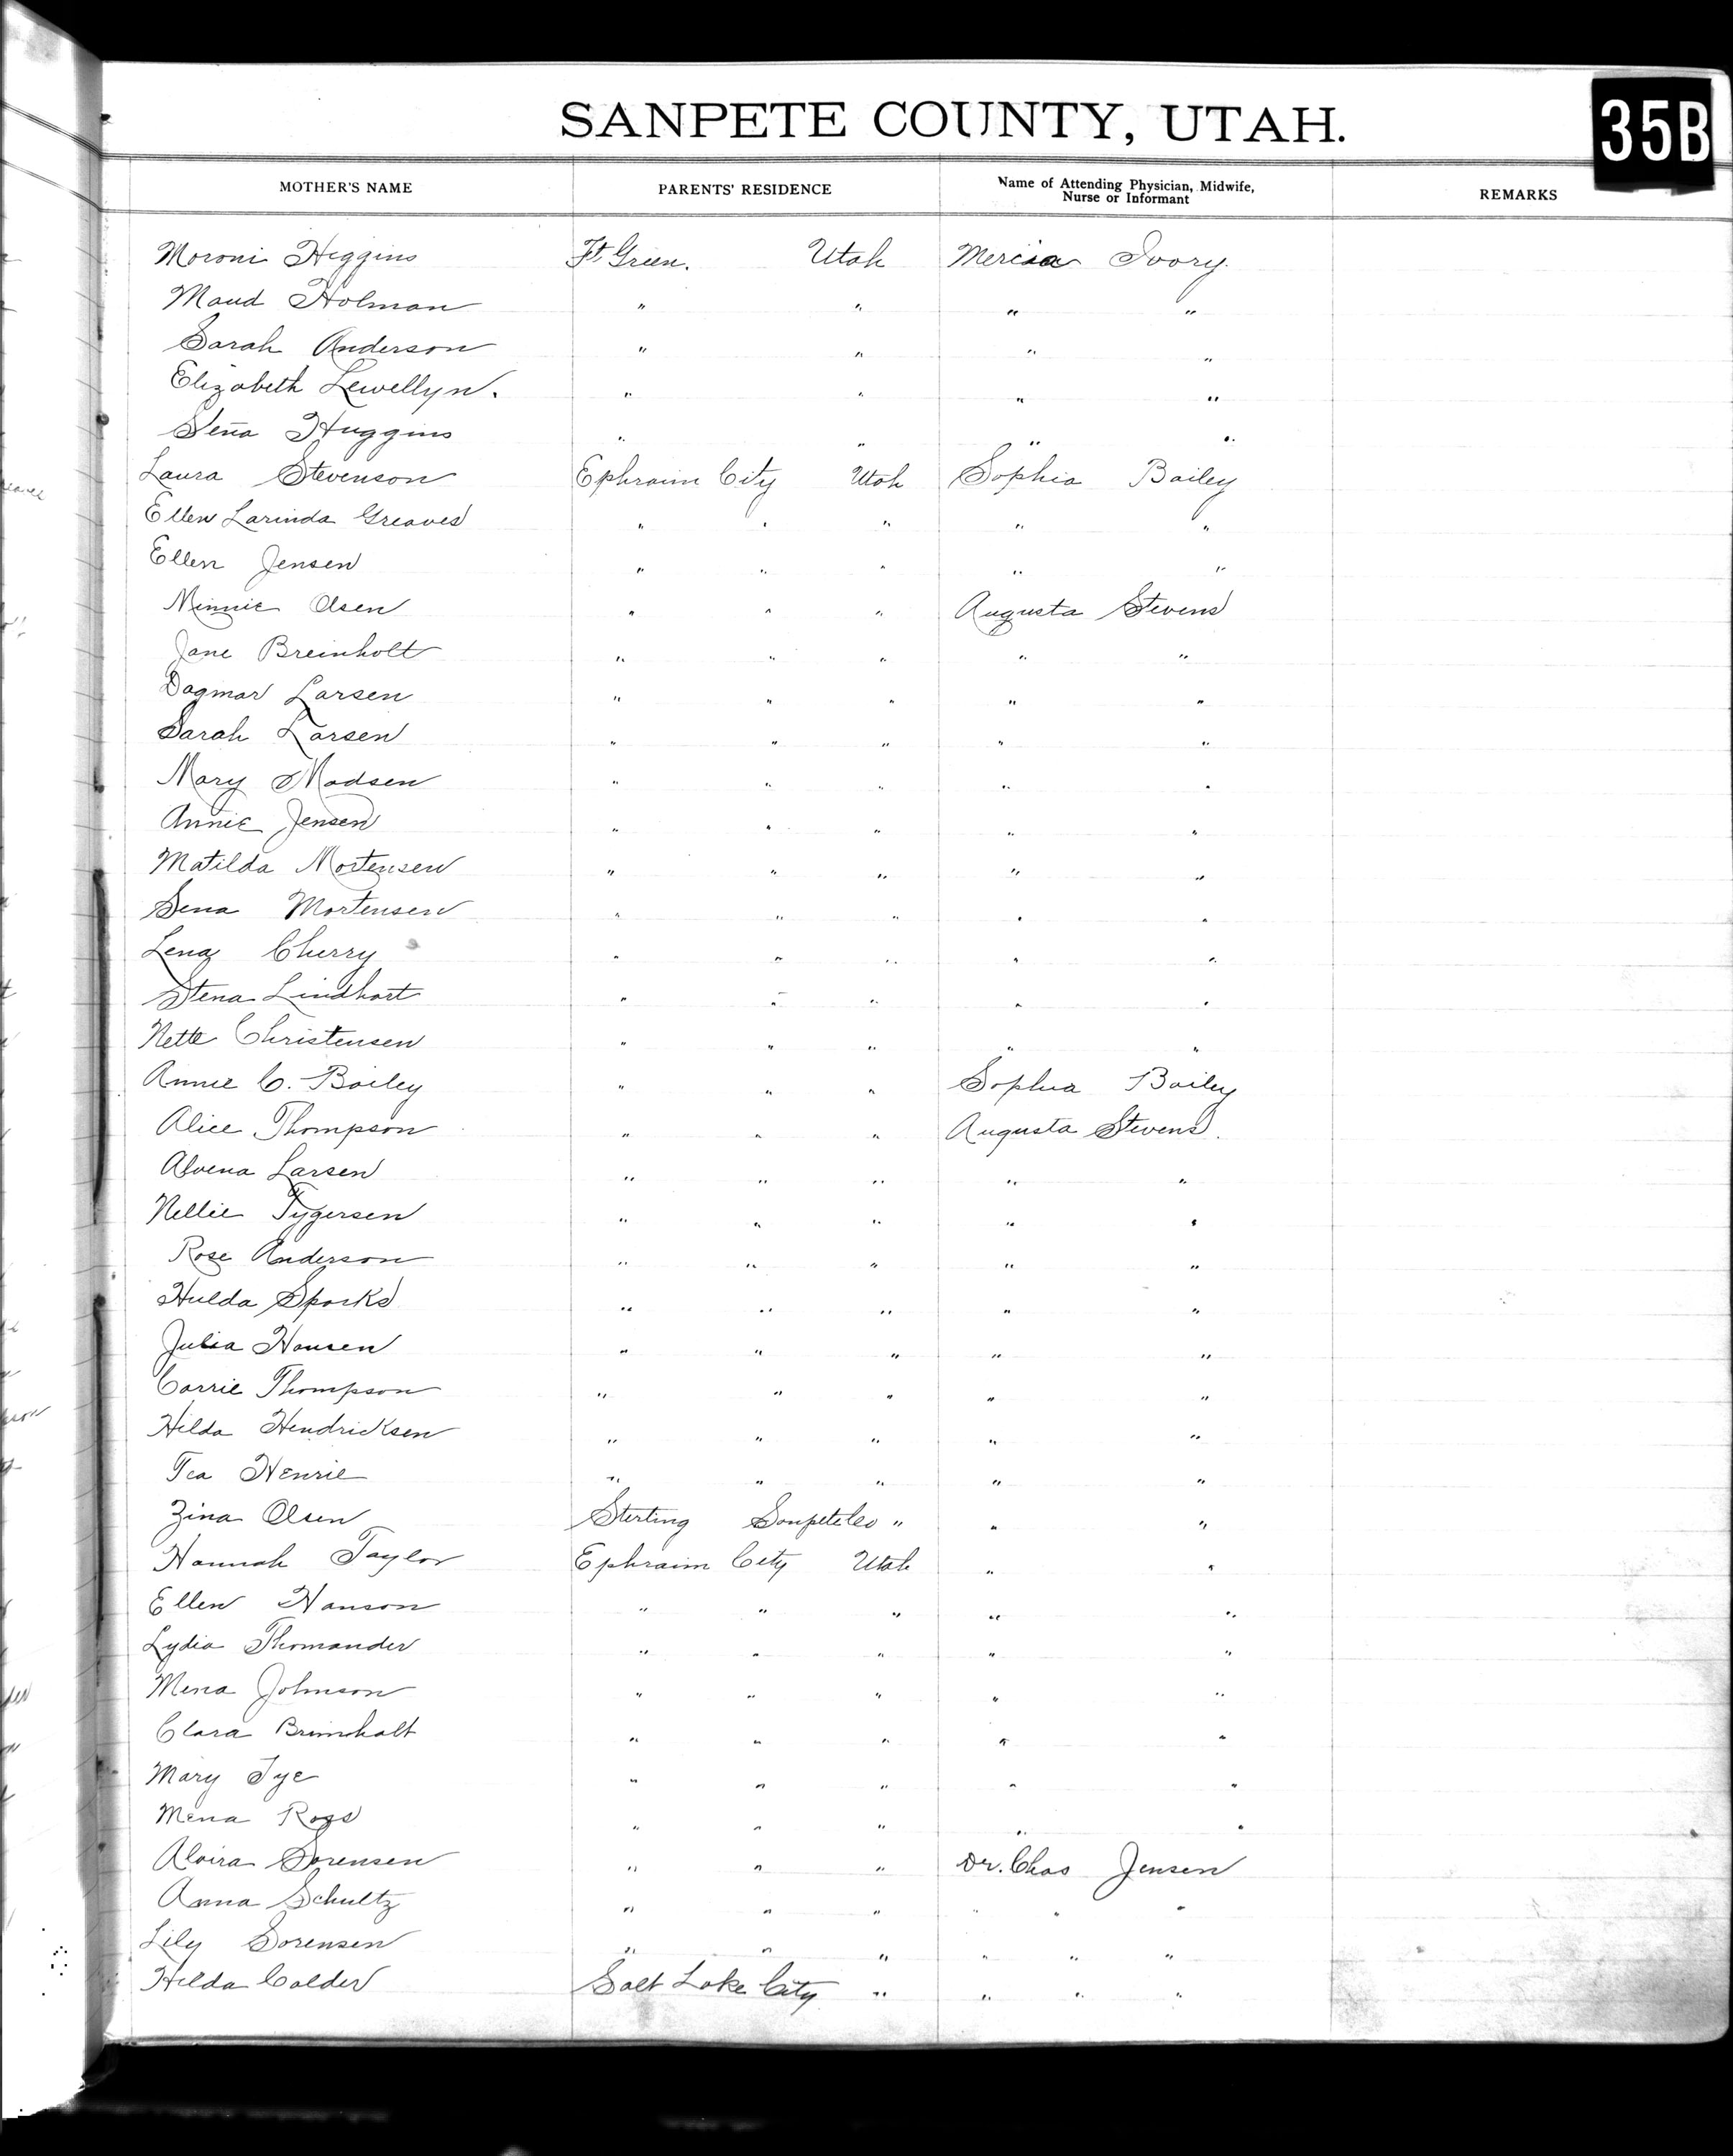 SANPETE COUNTY, UTAH.
35B
MOTHER'S NAME PARENTS' RESIDENCE Name of Attending Physician, Midwife, Nurse or Informant REMARKS
Moroni Higgins Ft. Green. Utah Mercia Ivory.
Maud Holman " " " "
Sarah Anderson " " " "
Elizabeth Lewellyn. " " " "
Sena Huggins " " " "
Laura Stevenson Ephraim City Utah Sophia Bailey
Ellen Larinda Greaves " " " " "
Ellen Jensen " " " " "
Minnie Olsen " " " Augusta Stevens
Jane Breinholt " " " " "
Dagmar Larsen " " " " "
Sarah Larsen " " " " "
Mary Madsen " " " " "
Annie Jensen " " " " "
Matilda Mortensen " " " " "
Sena Mortensen " " " " "
Lena Cherry " " " " "
Stena Lindhart " " " " "
Nette Christensen " " " " "
Annie C. Bailey " " " Sophia Bailey
Alice Thompson " " " Augusta Stevens.
Alvena Larsen " " " " "
Nellie Tygersen " " " " "
Rose Anderson " " " " "
Hulda Sparks " " " " "
Julia Hansen " " " " "
Carrie Thompson " " " " "
Hilda Hendricksen " " " " "
Tea Henrie " " " " "
Zina Olsen Sterling Sanpete Co " " "
Hannah Taylor Ephraim City Utah " "
Ellen Hanson " " " " "
Lydia Thomander " " " " "
Mena Johnson " " " " "
Clara Brimholt " " " " "
Mary Tye " " " " "
Mena Ross " " " " "
Alvira Sorensen " " " Dr. Chas Jensen
Anna Schultz " " " " " "
Lily Sorensen " " " " " "
Hilda Calder Salt Lake City " " " "